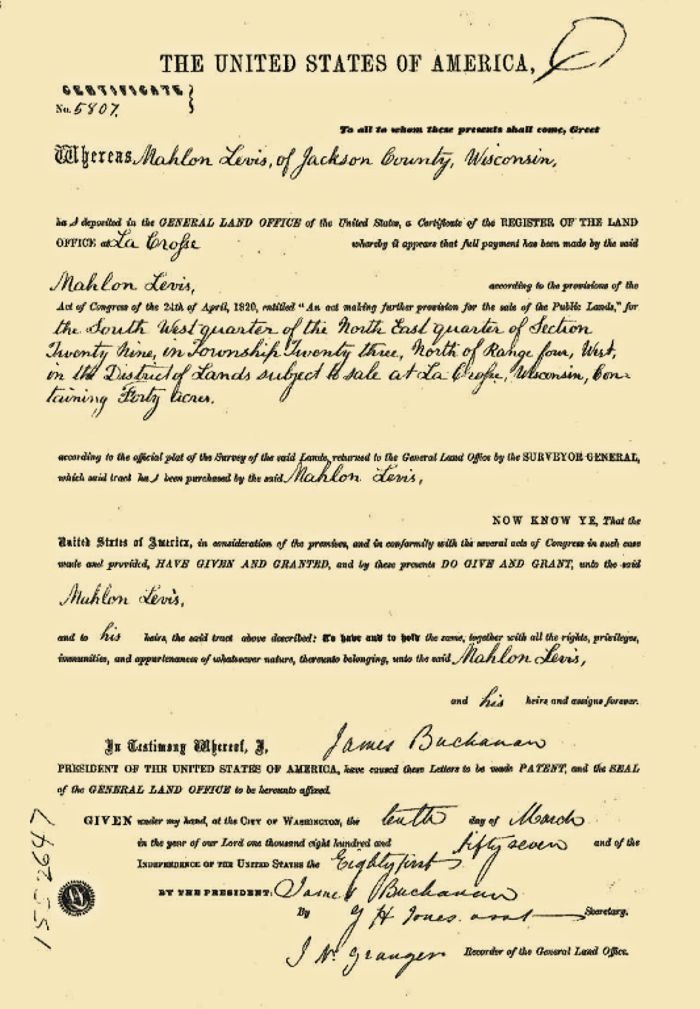 THE UNITED STATES OF AMERICA,
CERTIFICATE
No. 5807.
To all to whom these presents shall come, Greet
Whereas Mahlon Levis, of Jackson County, Wisconsin,
ha s deposited in the GENERAL LAND OFFICE of the United States, a Certificate of the REGISTER OF THE LAND
OFFICE at La Crosse whereby it appears that full payment has been made by the said
Mahlon Levis, according to the provisions of the
Act of Congress of the 24th of April, 1820, entitled "An act making further provision for the sale of the Public Lands," for
the South West quarter of the North East quarter of Section
Twenty Nine, in Township Twenty three, North of Range four, West,
in the District of Lands subject to sale at La Crosse, Wisconsin, Con-
taining Forty acres.
according to the official plat of the Survey of the said Lands, returned to the General Land Office by the SURVEYOR GENERAL,
which said tract ha s been purchased by the said Mahlon Levis,
NOW KNOW YE, That the
United States of America, in consideration of the premises, and in conformity with the several acts of Congress in such case
made and provided, HAVE GIVEN AND GRANTED, and by these presents DO GIVE AND GRANT, unto the said
Mahlon Levis,
and to his heirs, the said tract above described: To have and to hold the same, together with all the rights, privileges,
immunities, and appurtenances of whatsoever nature, thereunto belonging, unto the said Mahlon Levis,
and his heirs and assigns forever.
In Testimony Whereof, I, James Buchanan
PRESIDENT OF THE UNITED STATES OF AMERICA, have caused these Letters to be made PATENT, and the SEAL
of the GENERAL LAND OFFICE to be hereunto affixed.
GIVEN under my hand, at the CITY OF WASHINGTON, the tenth day of March
in the year of our Lord one thousand eight hundred and fifty seven and of the
INDEPENDENCE OF THE UNITED STATES the Eighty first
BY THE PRESIDENT: James Buchanan
By G H Jones asst Secretary.
J N Granger Recorder of the General Land Office.